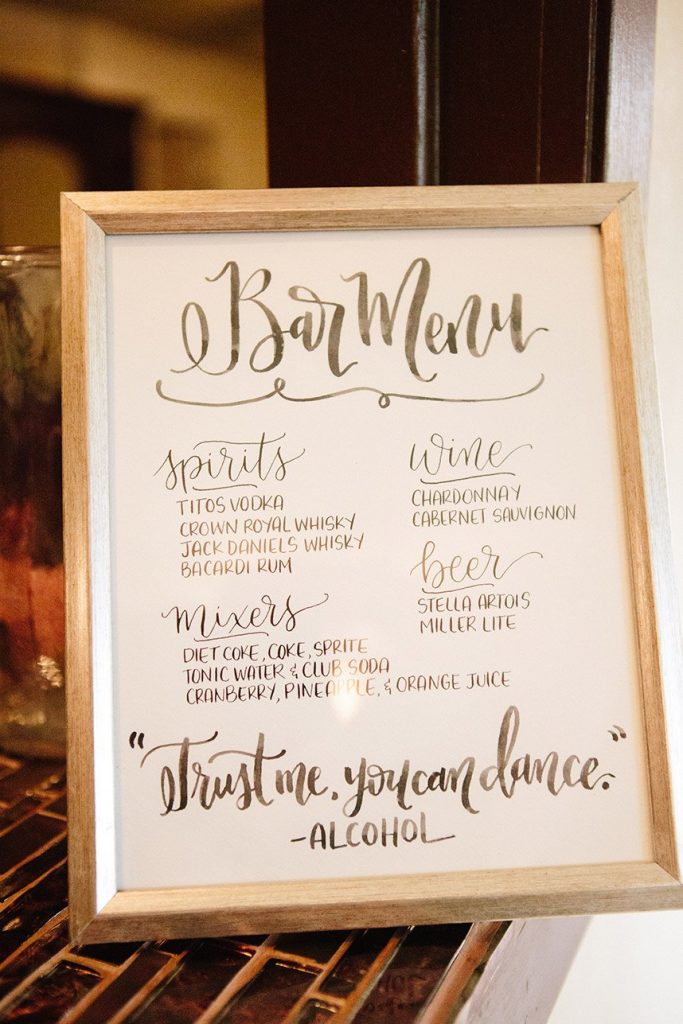 Bar Menu
spirits
TITOS VODKA
CROWN ROYAL WHISKY
JACK DANIELS WHISKY
BACARDI RUM
mixers
DIET COKE, COKE, SPRITE
TONIC WATER & CLUB SODA
CRANBERRY, PINEAPPLE, & ORANGE JUICE
wine
CHARDONNAY
CABERNET SAUVIGNON
beer
STELLA ARTOIS
MILLER LITE
"Trust me, you can dance."
-ALCOHOL